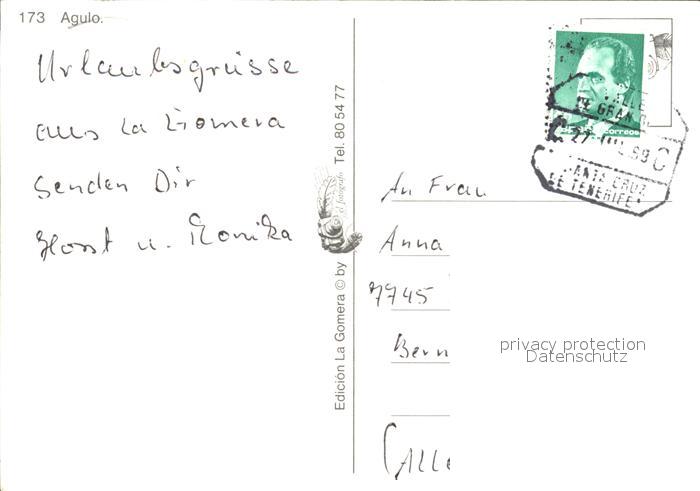 173 Agulo.
Urlaubsgrüsse
aus La Gomera
senden Dir
Horst u. Monika
Edición La Gomera © by el fotógrafo Tel. 80 54 77
correos
VALLE
GRAN R
27
89
SANTA CRUZ
DE TENERIFE
An Frau
Anna
7745
Bern
(Alle
privacy protection
Datenschutz